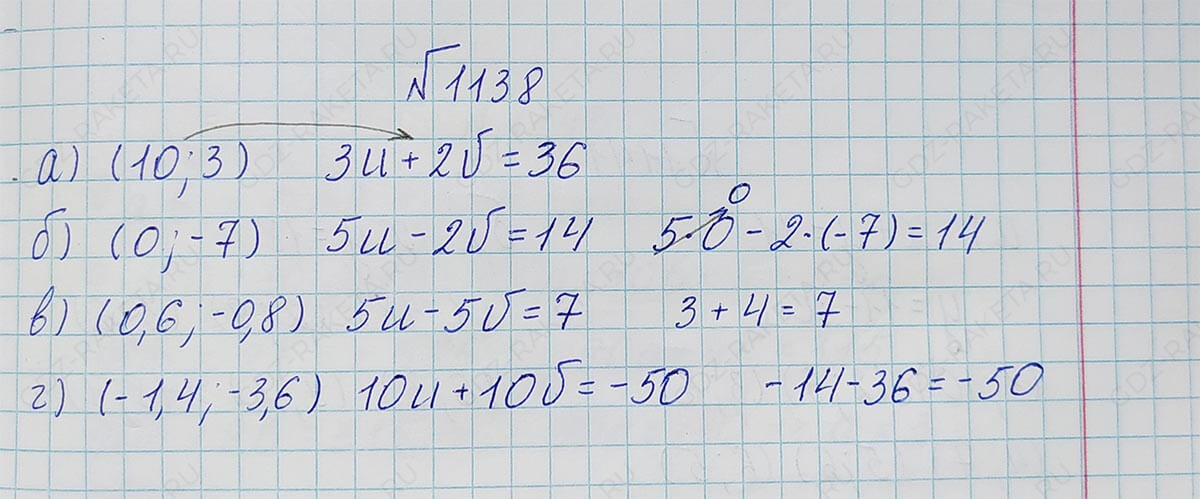 №1138
а) (10; 3) 3u + 2v = 36
б) (0; -7) 5u - 2v = 14 5·0 - 2·(-7) = 14
0
в) (0,6; -0,8) 5u - 5v = 7 3 + 4 = 7
г) (-1,4; -3,6) 10u + 10v = -50 -14 - 36 = -50
GDZ-RAKETA.RU